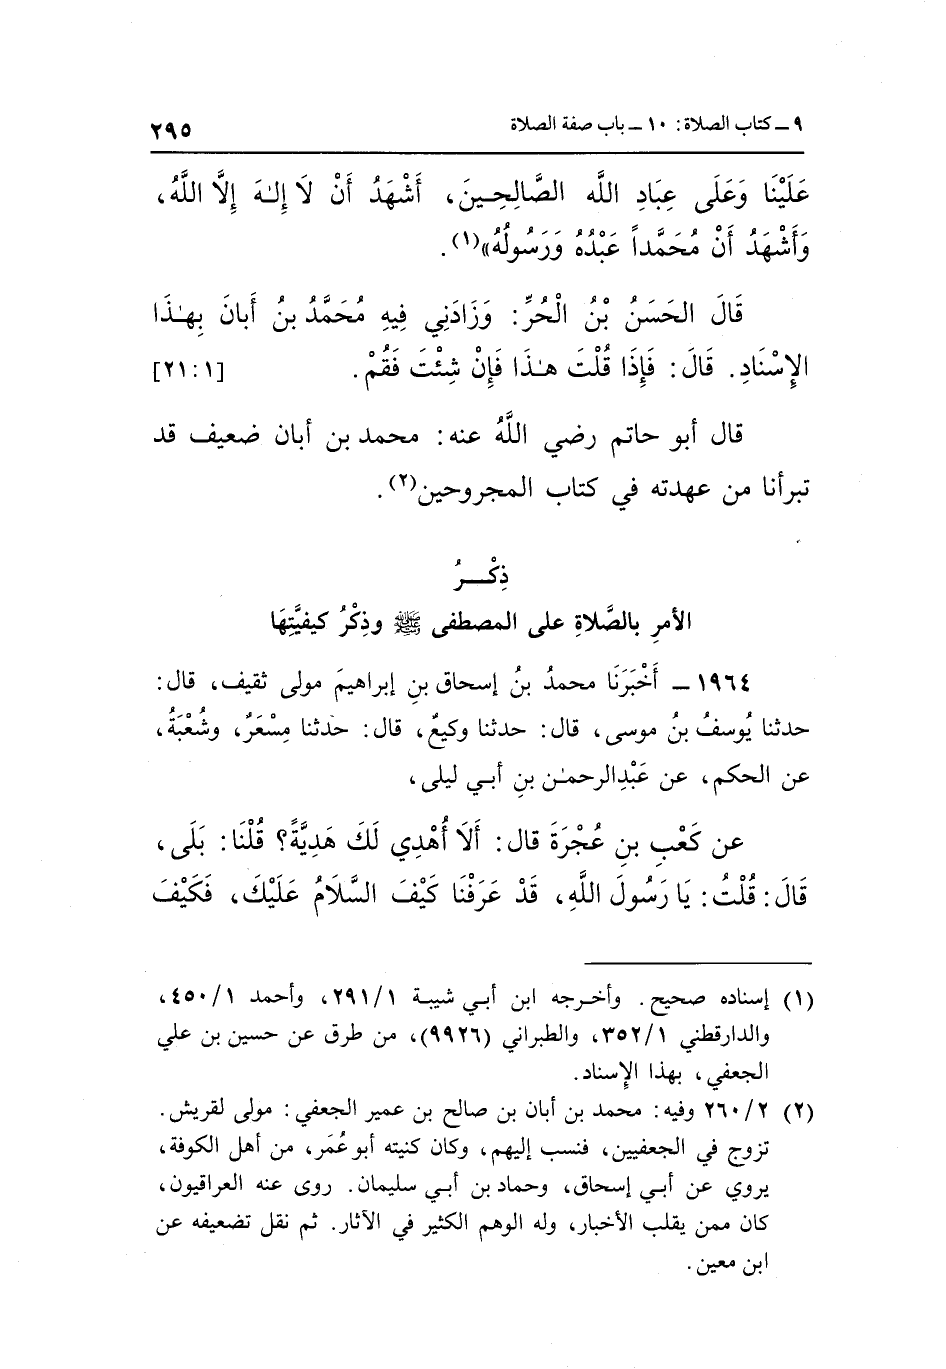 ٩ ـ كتاب الصلاة: ١٠ ـ باب صفة الصلاة ٢٩٥
عَلَيْنَا وَعَلَى عِبَادِ اللَّه الصَّالِحِينَ، أَشْهَدُ أَنْ لَا إِلٰهَ إِلَّا اللَّهُ،
وَأَشْهَدُ أَنَّ مُحَمَّداً عَبْدُهُ وَرَسُولُهُ»(١).
قَالَ الحَسَنُ بْنُ الْحُرِّ: وَزَادَنِي فِيهِ مُحَمَّدُ بنُ أَبانَ بِهٰذَا
الإِسْنَادِ. قَالَ: فَإِذَا قُلْتَ هٰذَا فَإِنْ شِئْتَ فَقُمْ. [٢١:١]
قال أبو حاتم رضي اللَّهُ عنه: محمد بن أبان ضعيف قد
تبرأنا من عهدته في كتاب المجروحين(٢).
ذِكْرُ
الأمرِ بالصَّلاةِ على المصطفى ﷺ وذِكْرُ كيفيَّتِهَا
١٩٦٤ ـ أَخْبَرَنَا محمدُ بنُ إسحاق بنِ إبراهيمَ مولى ثقيف، قال:
حدثنا يُوسفُ بنُ موسى، قال: حدثنا وكيعٌ، قال: حدثنا مِسْعَرٌ، وشُعْبَةُ،
عن الحكم، عن عَبْدِالرحمٰن بنِ أبي ليلى،
عن كَعْبِ بنِ عُجْرَةَ قال: أَلَا أُهْدِي لَكَ هَدِيَّةً؟ قُلْنَا: بَلَى،
قَالَ: قُلْتُ: يَا رَسُولَ اللَّهِ، قَدْ عَرَفْنَا كَيْفَ السَّلَامُ عَلَيْكَ، فَكَيْفَ
(١) إسناده صحيح. وأخرجه ابن أبي شيبة ٢٩١/١، وأحمد ٤٥٠/١،
والدارقطني ٣٥٢/١، والطبراني (٩٩٢٦)، من طرق عن حسين بن علي
الجعفي، بهذا الإسناد.
(٢) ٢٦٠/٢ وفيه: محمد بن أبان بن صالح بن عمير الجعفي: مولى لقريش.
تزوج في الجعفيين، فنسب إليهم، وكان كنيته أبو عُمَر، من أهل الكوفة،
يروي عن أبي إسحاق، وحماد بن أبي سليمان. روى عنه العراقيون،
كان ممن يقلب الأخبار، وله الوهم الكثير في الآثار. ثم نقل تضعيفه عن
ابن معين.